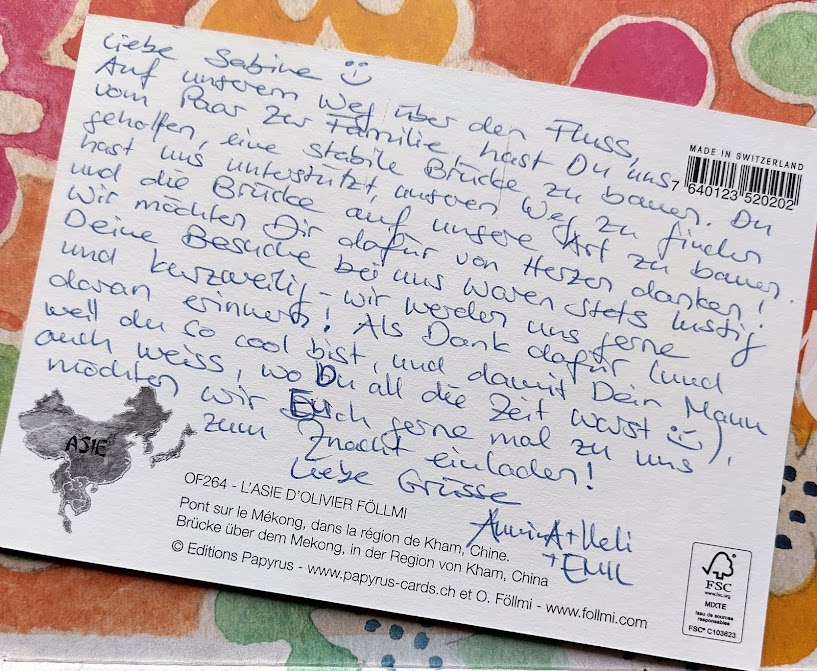 Liebe Sabine
Auf unserem Weg über den Fluss,
vom Paar zur Familie, hast Du uns
geholfen, eine stabile Brücke zu bauen. Du
hast uns unterstützt, unseren Weg zu finden
und die Brücke auf unsere Art zu bauen.
Wir möchten Dir dafür von Herzen danken!
Deine Besuche bei uns waren stets lustig
und kurzweilig - wir werden uns gerne
daran erinnern! Als Dank dafür (und
weil du so cool bist, und damit Dein Mann
auch weiss, wo Du all die Zeit warst),
möchten wir Euch gerne mal zu uns
zum Znacht einladen!
Liebe Grüsse
+ Ueli
+ EMIL
MADE IN SWITZERLAND
7 640123 520202
ASIE
OF264 - L'ASIE D'OLIVIER FÖLLMI
Pont sur le Mékong, dans la région de Kham, Chine.
Brücke über dem Mekong, in der Region von Kham, China
© Editions Papyrus - www.papyrus-cards.ch et O. Föllmi - www.follmi.com
FSC
www.fsc.org
MIXTE
Issu de sources
responsables
FSC® C103623